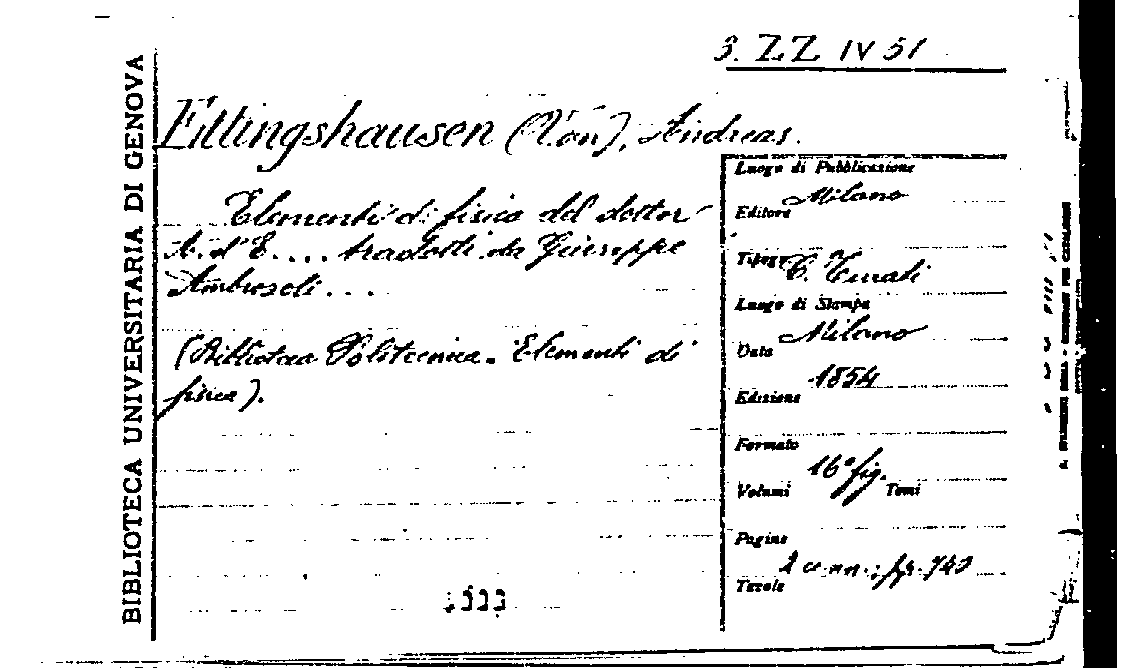 3. ZZ IV 51
BIBLIOTECA UNIVERSITARIA DI GENOVA
Ettingshausen (Von), Andreas.
Elementi di fisica del dottor
A. d'E.... tradotti da Giuseppe
Ambrosoli....
(Biblioteca Politecnica - Elementi di
fisica).
Luogo di Pubblicazione
Milano
Editore
Tipogr.
C. Turati
Luogo di Stampa
Milano
Data
1854
Edizione
Formato
16° fig.
Volumi Tomi
Pagine
2 cc. nn.; pp. 740
Tavole